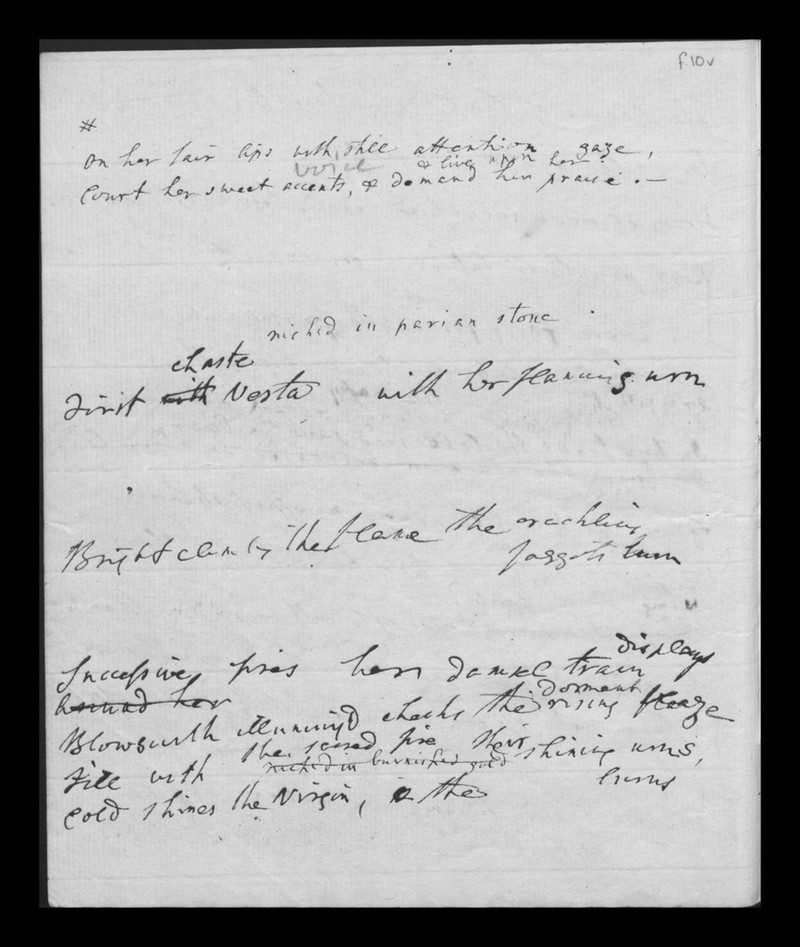 f.10v
#
On her fair lips with still attention gaze,
voice & live upon her
Court her sweet accents, & demand her praise. —
niched in parian stone
chaste
First with Vesta with her flaming urn
Bright climbs the flame the crackling
faggots burn
displays
Successive fires her damsel train
around her
dormant
Blows with cheeks the rising blaze
Fill with the sacred fire their shining urns,
niched in burnished gold
burns
Cold shines the Virgin, & the